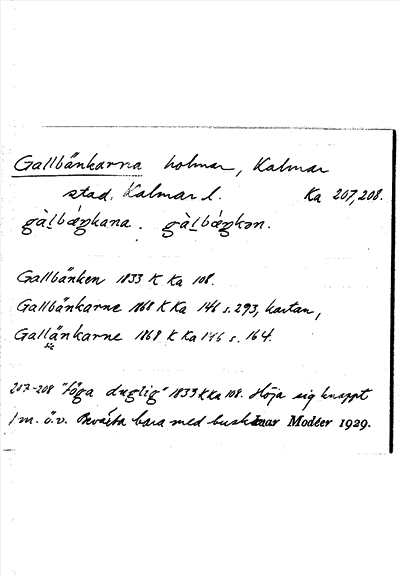 Gallbänkarna holmar, Kalmar
stad, Kalmar l. Ka 207,208.
gàḷbæŋkana. gàḷbǽŋkən.
Gallbänken 1833 K Ka 108.
Gallbänkarne 1868 K Ka 146 s. 293, kartan,
Gallänkarne 1868 K Ka 146 s. 164.
sic
207-208 "föga duglig" 1833 K Ka 108. Höja sig knappt
1 m. ö.v. Bevåxta bara med buskar
Ivar Modéer 1929.